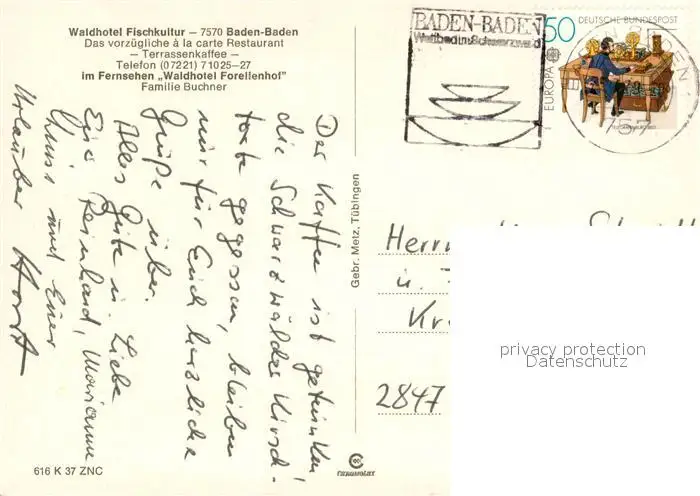 Waldhotel Fischkultur – 7570 Baden-Baden
Das vorzügliche à la carte Restaurant
– Terrassenkaffee –
Telefon (07221) 71025-27
im Fernsehen „Waldhotel Forellenhof"
Familie Buchner
Der Kaffee ist getrunken,
die Schwarzwälder Kirsch-
torte gegessen, bleiben
nur für Euch herzliche
Grüße über.
Alles Gute in Liebe
Eure Reinhard, Marianne
und Euer
Urlauber Horst
616 K 37 ZNC
Gebr. Metz, Tübingen
BADEN-BADEN
Weltbad im Schwarzwald
50
DEUTSCHE BUNDESPOST
EUROPA
BADEN-BADEN
757
Herrn
u.
Kr
2847
privacy protection
Datenschutz